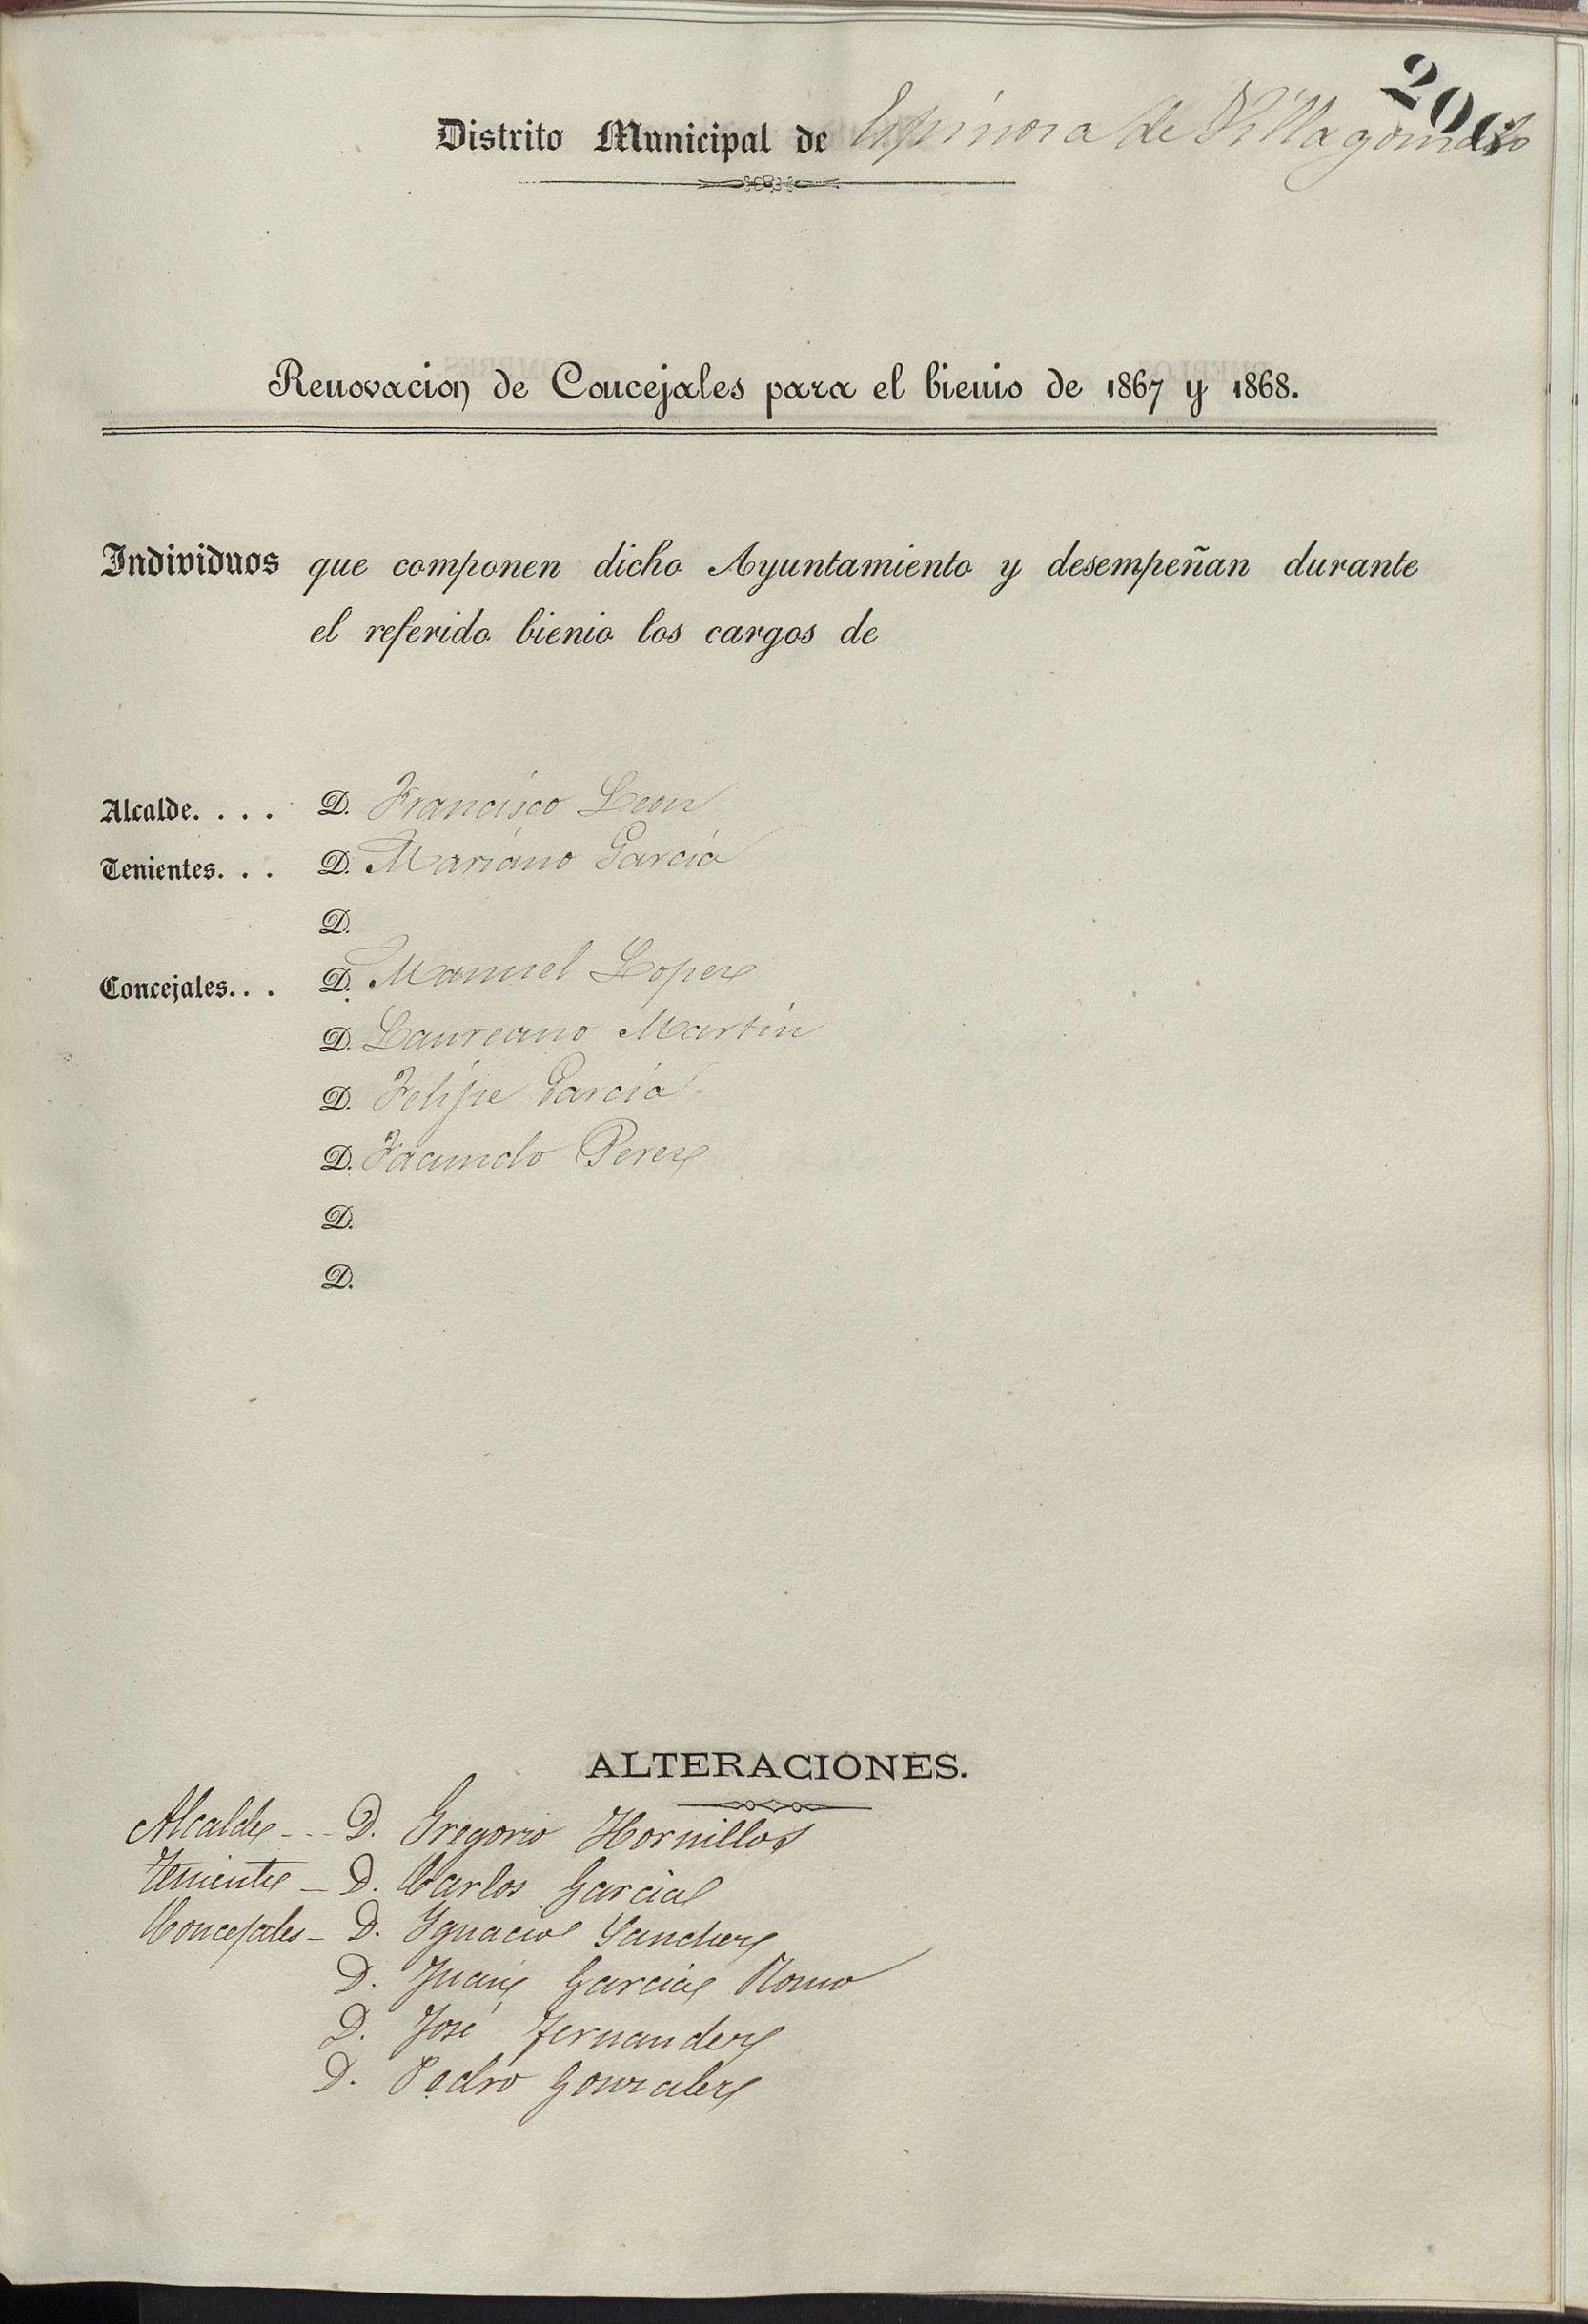 206
Distrito Municipal de Espinosa de Villagonzalo
Renovacion de Concejales para el bienio de 1867 y 1868.
Individuos que componen dicho Ayuntamiento y desempeñan durante
el referido bienio los cargos de
Alcalde. . . . D. Francisco Leon
Tenientes. . . D. Mariano Garcia
D.
Concejales. . . D. Manuel Lopez
D. Laureano Martin
D. Felipe Garcia
D. Facundo Perez
D.
D.
ALTERACIONES.
Alcalde - - - D. Gregorio Hornillos
Teniente - D. Carlos Garcia
Concejales - D. Ygnacio Sanchez
D. Juan Garcia Romo
D. José Fernandez
D. Pedro Gonzalez